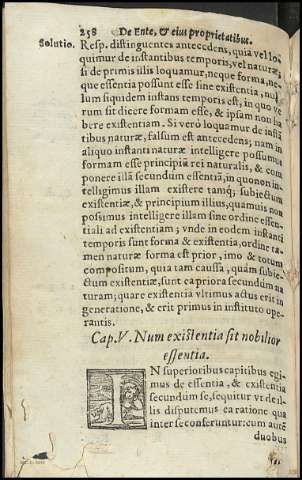 258 De Ente, & eius proprietatibus.
Solutio. Resp. distinguentes antecedens, quia vel lo
quimur de instantibus temporis, vel naturæ,
si de primis illis loquamur, neque forma, ne
que essentia possunt esse sine existentia, nul
lum siquidem instans temporis est, in quo ve
rum sit dicere formam esse, & ipsam non ha
bere existentiam. Si verò loquamur de instã
tibus naturæ, falsum est antecedens; nam in
aliquo instanti naturæ intelligere possumus
formam esse principiũ rei naturalis, & com
ponere illã secundum essentiã, in quo non in
telligimus illam existere tanquã subiectum
existentiæ, & principium illius, quamuis non
possimus intelligere illam sine ordine essen-
tiali ad existentiam; vnde in eodem instanti
temporis sunt forma & existentia, ordine ta
men naturæ forma est prior, imo & totum
compositum, quia tam caussa, quàm subie-
ctum existentiæ, sunt ea priora secundũm na
turam; quare existentia vltimus actus erit in
generatione, & erit primus in instituto ope-
rantis.
Cap. V. Num existentia sit nobilior
essentia.
IN superioribus capitibus egi-
mus de essentia, & existentia
secundùm se, sequitur vt de il-
lis disputemus ea ratione qua
inter se conferuntur: cum autẽ
duobus